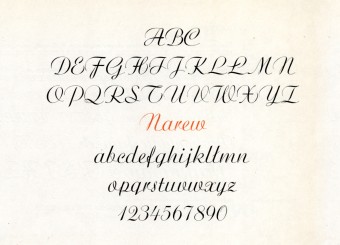 ABC
DEFGHIJKLLMN
OPQRSTUVWXYZ
Narew
abcdefghijkllmn
opqrstuvwxyz
1234567890